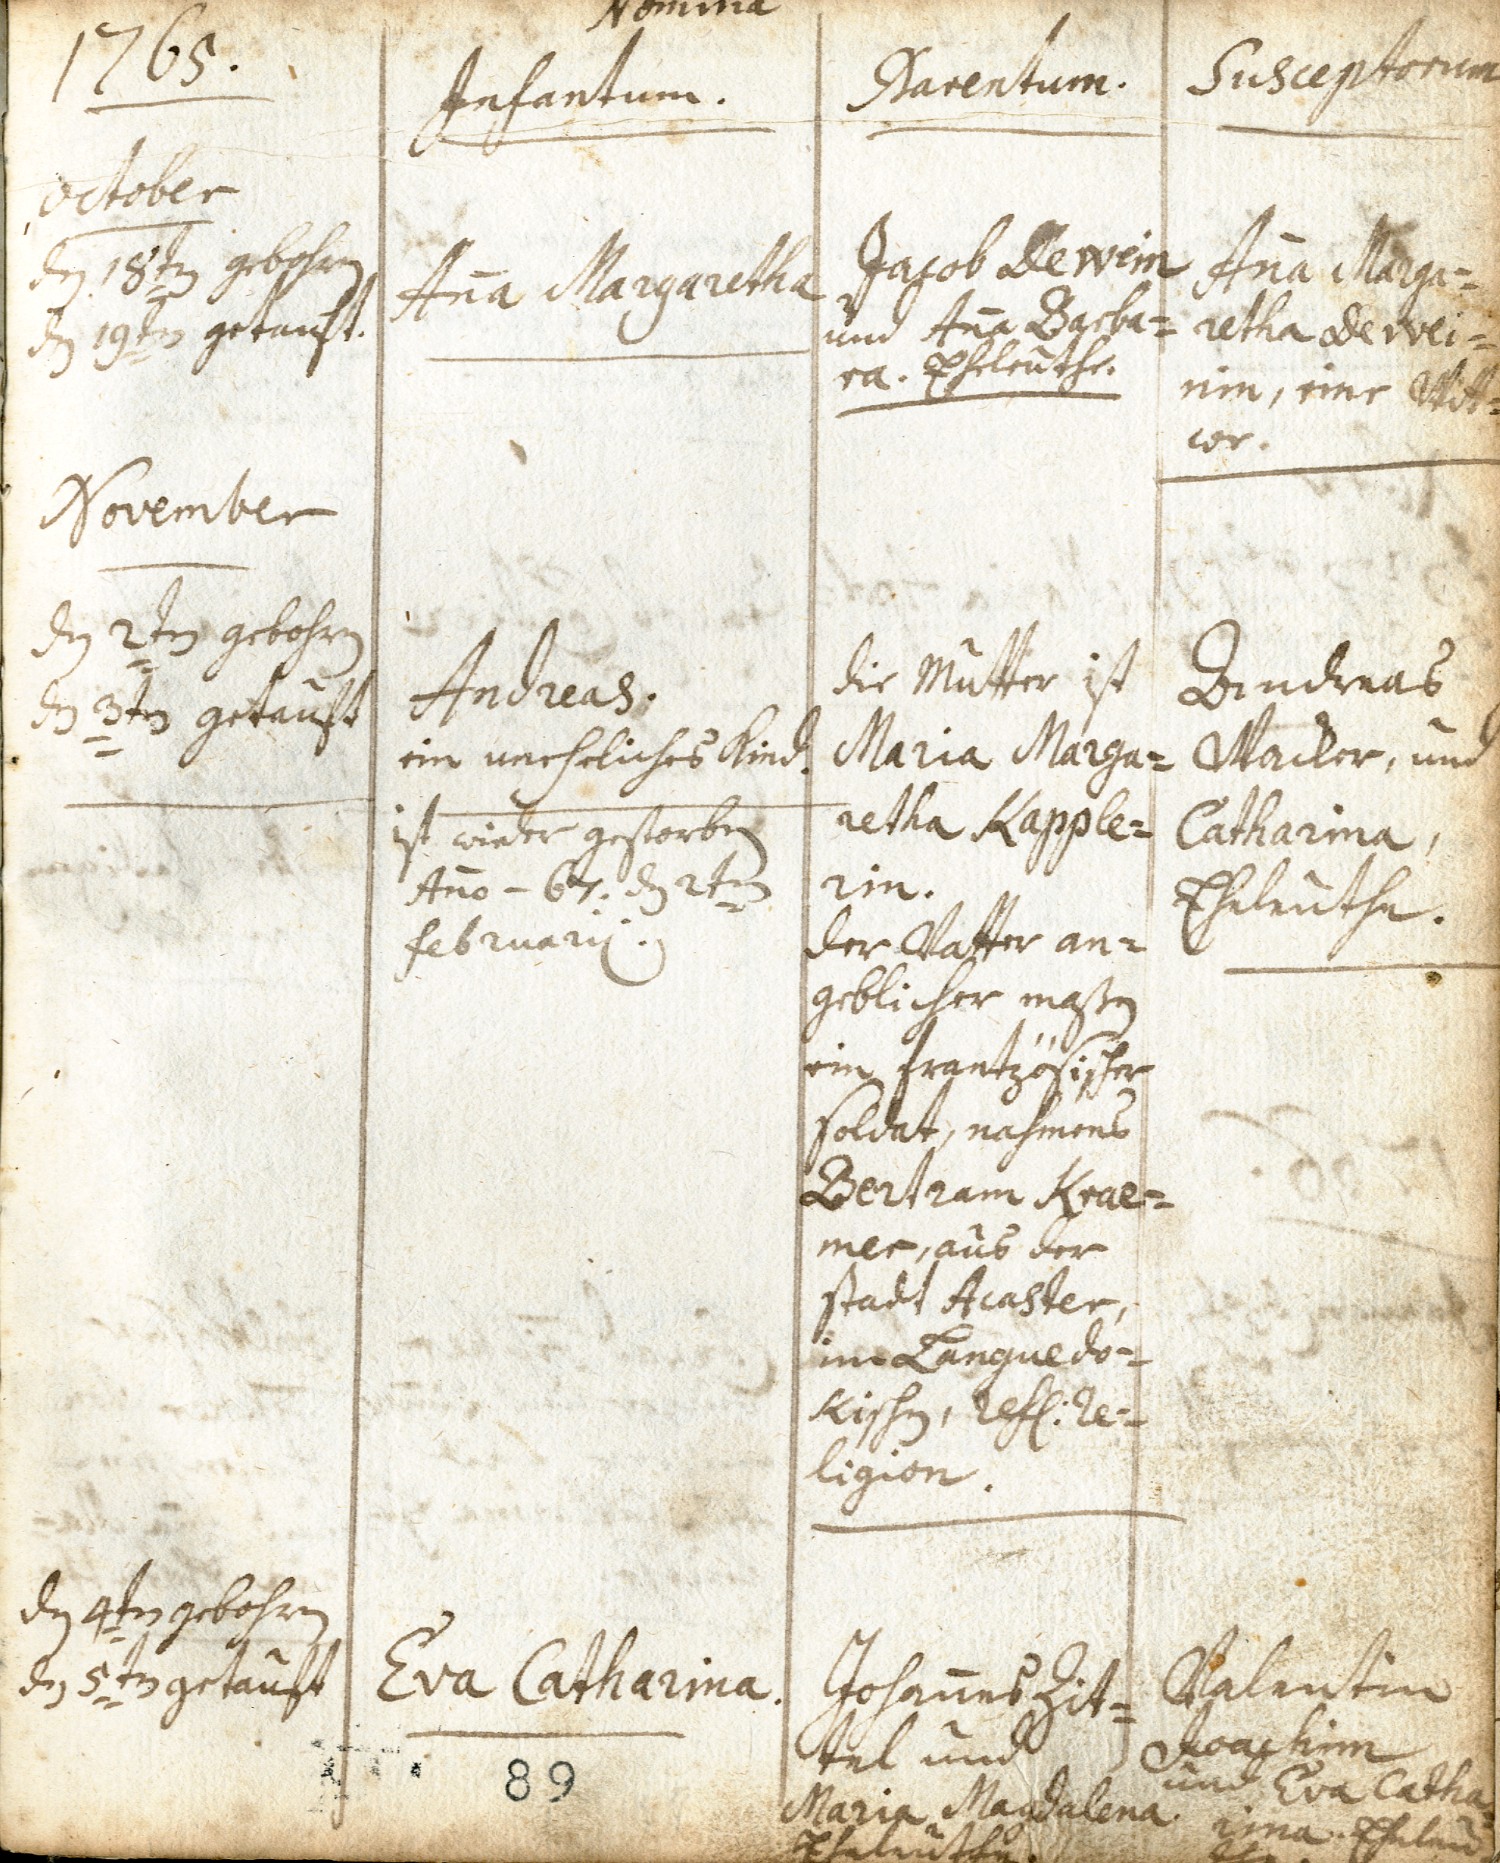 Nomina
1765.
Infantum.
Parentum.
Susceptorum
October
den 18ten gebohren
den 19ten getauft.
Aña Margaretha
Jacob Dewein
und Aña Barba=
ra. Eheleuthe.
Aña Marga=
retha Dewei=
nin, eine Witt=
we.
November
den 2ten gebohren
den 3ten getauft
Andreas.
ein uneheliches Kind.
ist wieder gestorben
Año - 67. den 2ten
februarij.
die Mutter ist
Maria Marga=
retha Kapple=
rin.
der Vatter an=
geblicher maßen
ein frantzösischer
soldat, nahmens
Bertram Krae=
mer, aus der
stadt Acaster,
im Languedo=
kischen, refl: Re=
ligion.
Andreas
Wacker, und
Catharina,
Eheleuthe.
den 4ten gebohren
den 5ten getauft
Eva Catharina.
Johannes Zit=
tel und
Maria Magdalena
Eheleuthe.
Valentin
Joachim
und Eva Catha=
rina. Eheleu
89